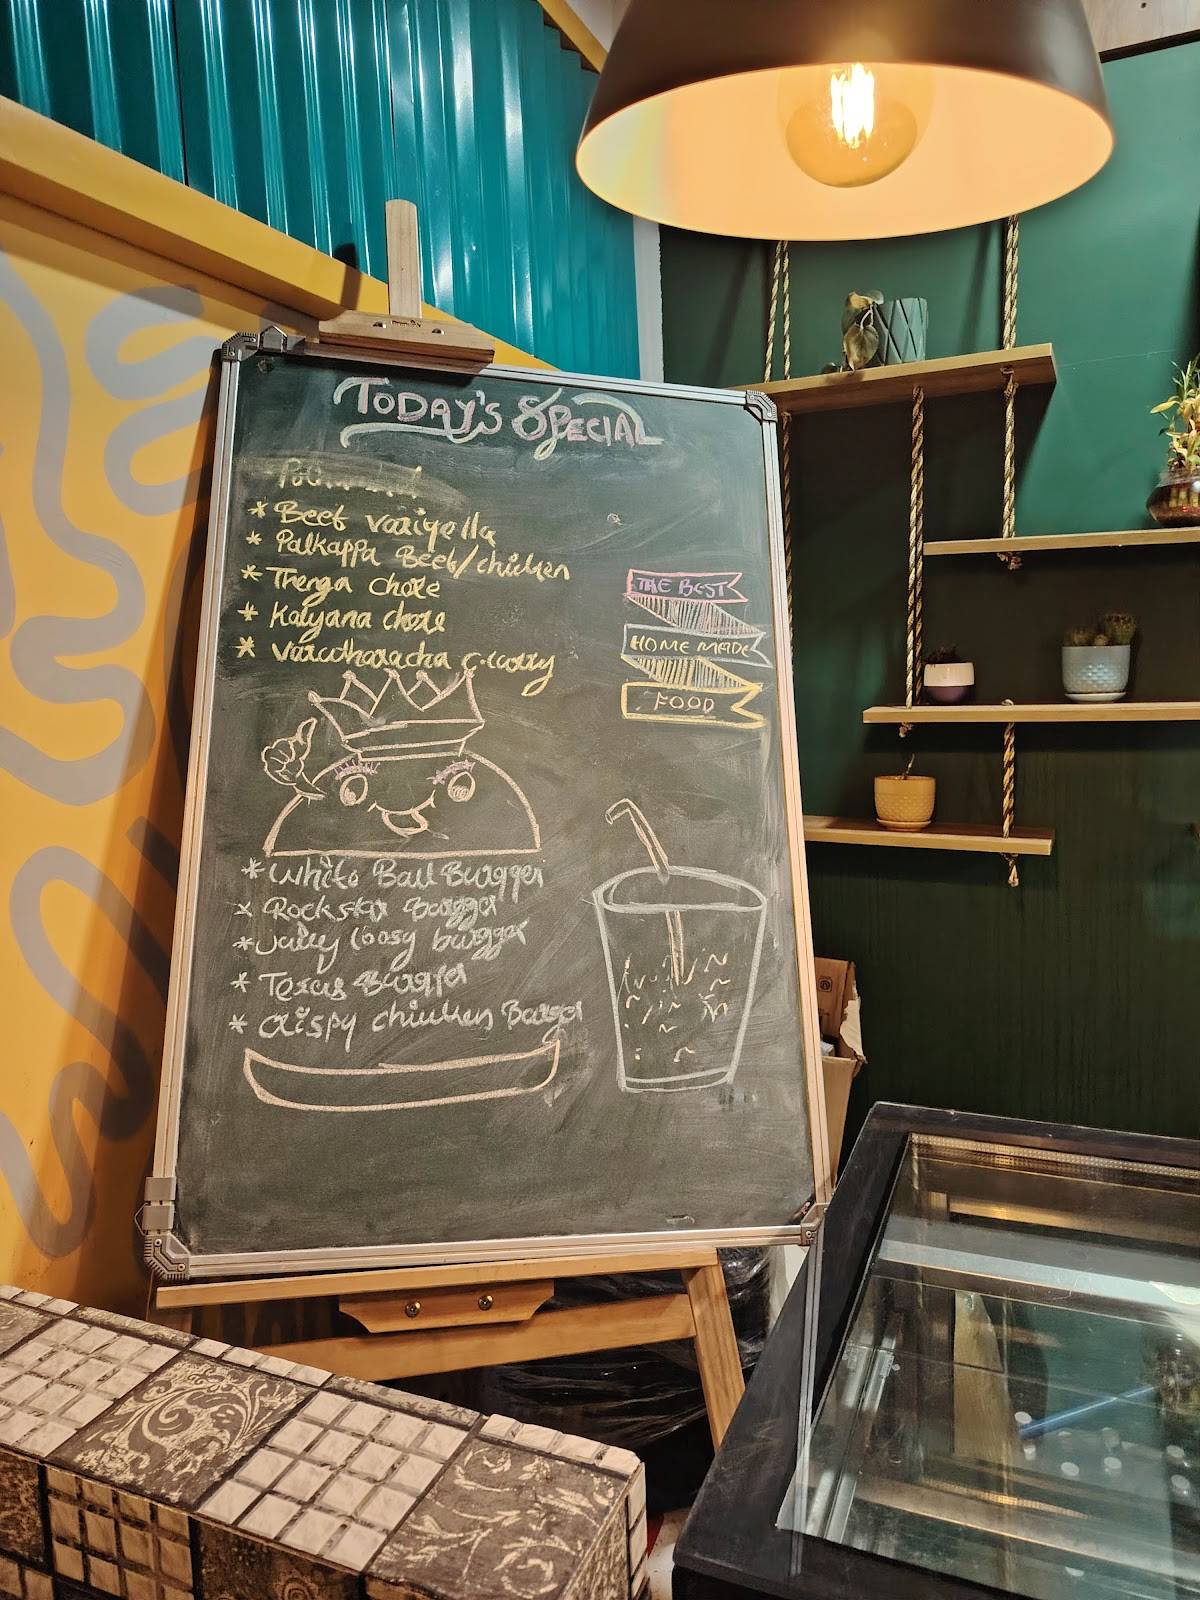 TODAY'S SPECIAL
* Beef variyella
* Palkappa Beef/chicken
* Thenga chore
* Kalyana chore
* Varutharacha curry
THE BEST
HOME MADE
FOOD
* White Ball Burgger
* Rockstar Burgger
* Juicy loosy burgger
* Texas Burger
* crispy chicken Burger